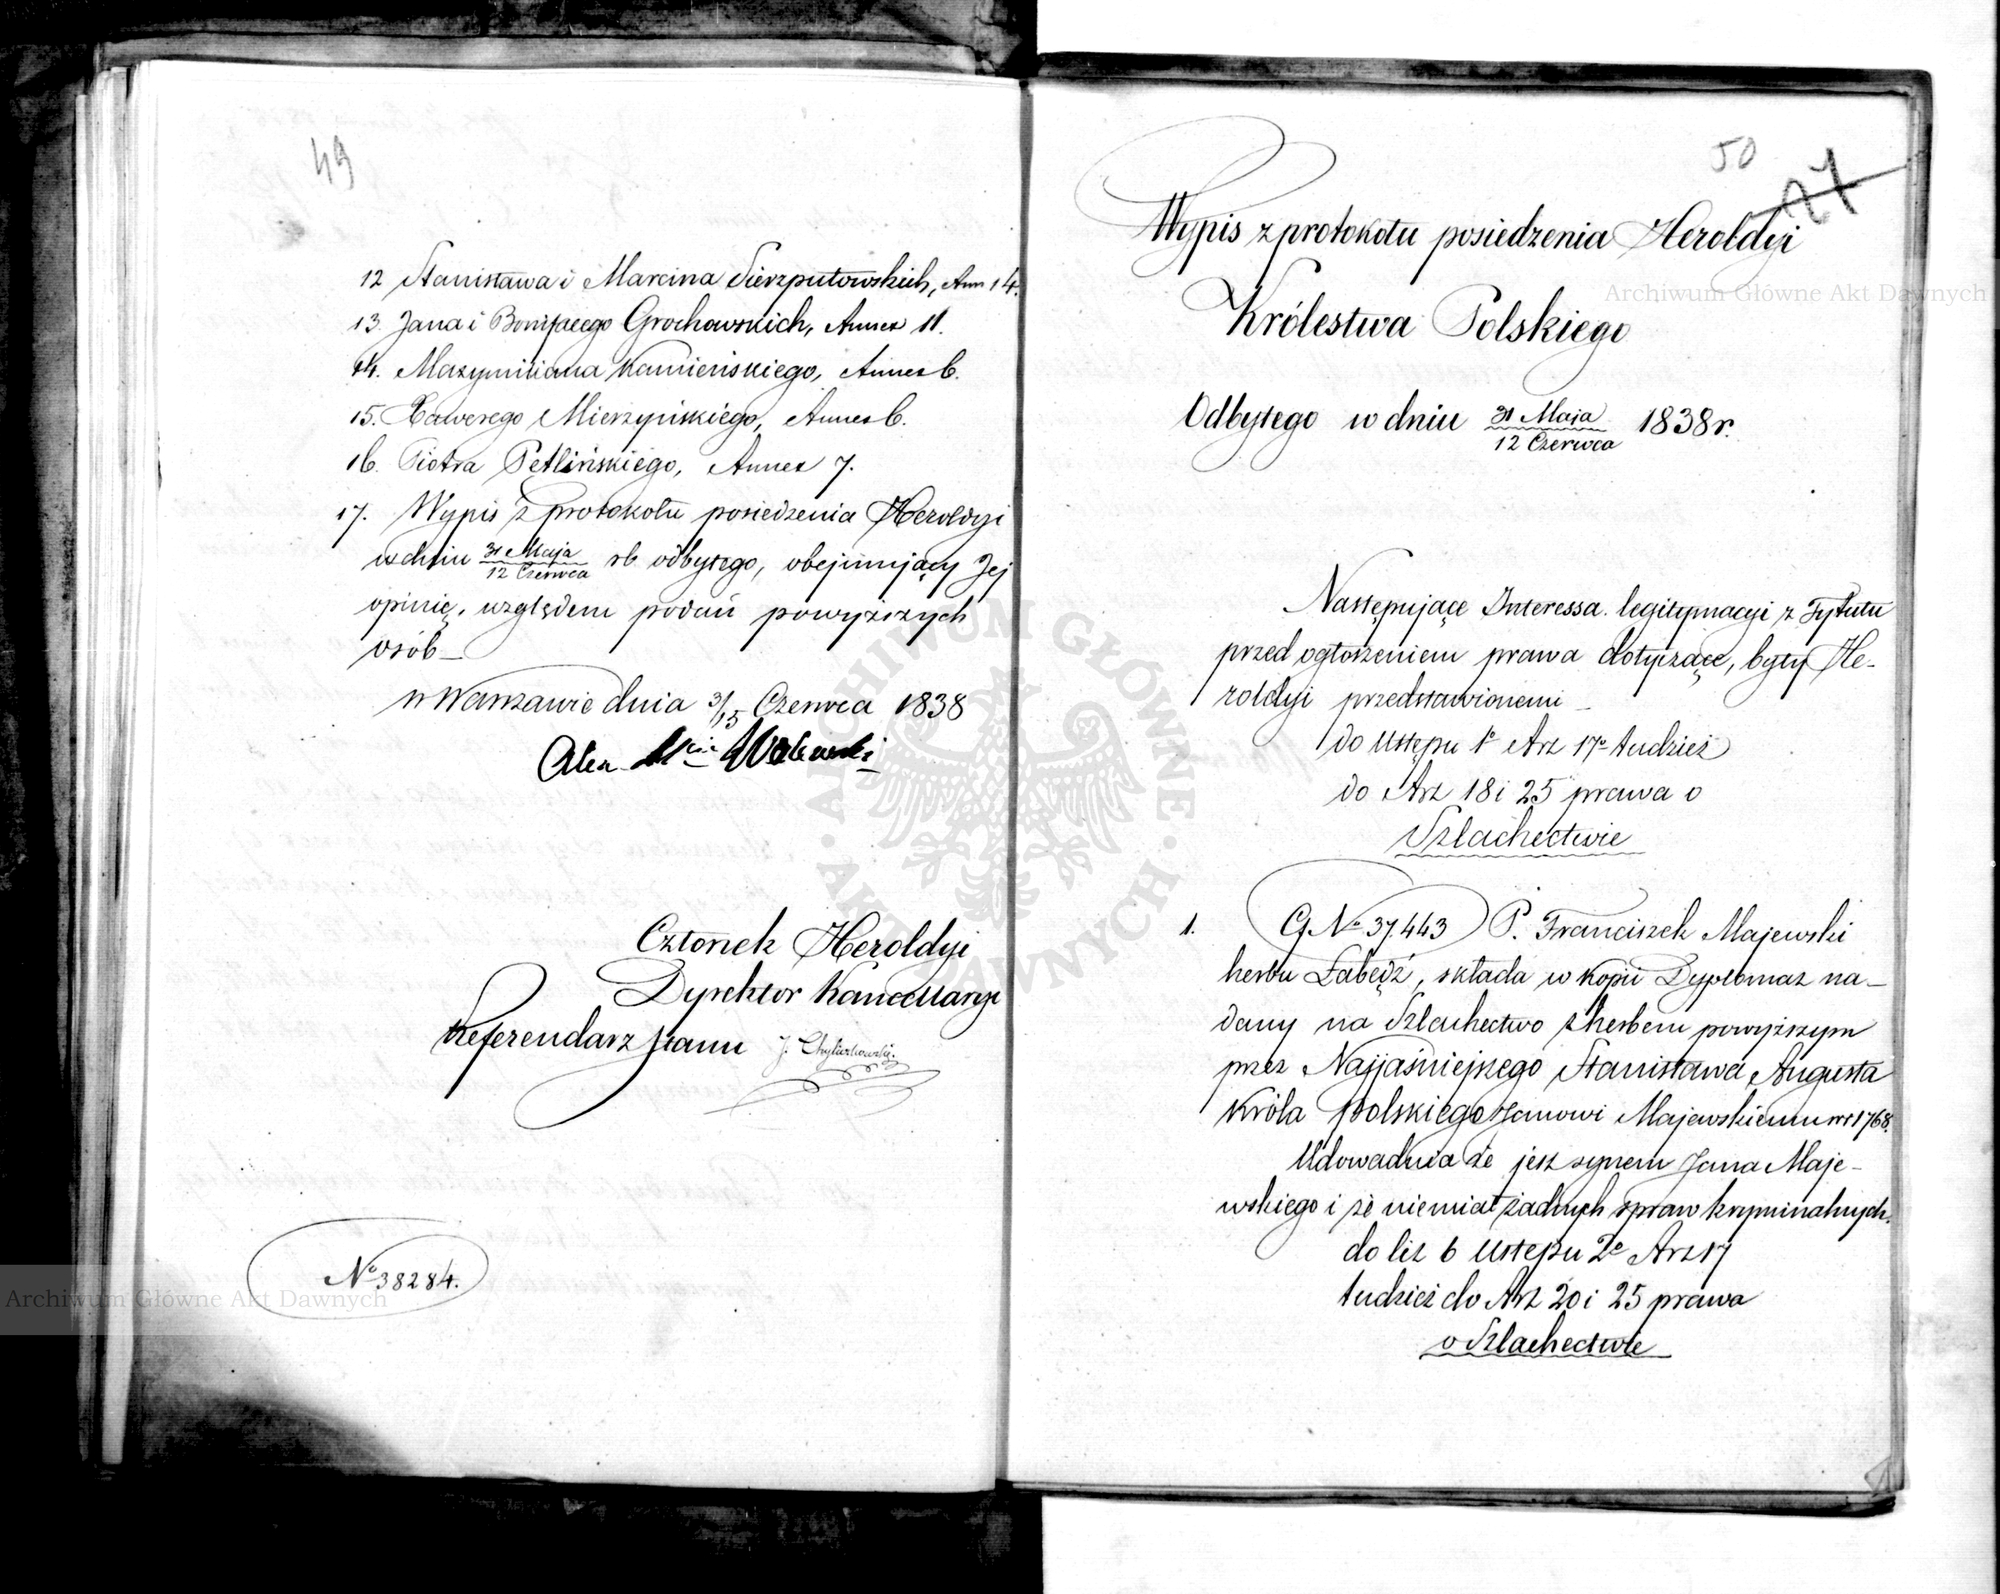 49
12 Stanisława i Marcina Sierzputowskich, Ann 14.
13. Jana i Bonifacego Grochowskich, Annex 11.
14. Maxymiliana Kamieńskiego, Annex 6.
15. Xawerego Mierzyńskiego, Annex 6.
16. Piotra Petlińskiego, Annex 7.
17. Wypis z protokołu posiedzenia Heroldyi
w dniu 31 Maja / 12 Czerwca rb odbytego, obejmujący Jej
opinię, względem podań powyższych
osób_
w Warszawie dnia 3/15 Czerwca 1838
Członek Heroldyi
Dyrektor Kancellaryi
Referendarz Stanu
No 38284.
50
27
Wypis z protokołu posiedzenia Heroldyi
Królestwa Polskiego
Odbytego w dniu 31 Maja / 12 Czerwca 1838 r.
Następujące Interessa legitymacyi z Tytułu
przed ogłoszeniem prawa dotyczące, były He-
roldyi przedstawionemi_
do Ustępu 1o Art 17o tudzież
do Art 18 i 25 prawa o
Szlachectwie
1. G No 37443 P. Franciszek Majewski
herbu Łabędź, składa w kopii Dyplomat na-
dany na Szlachectwo z herbem powyższym
przez Najjaśniejszego Stanisława Augusta
Króla Polskiego Janowi Majewskiemu w r 1768.
Udowadnia że jest synem Jana Maje-
wskiego i że niemiał żadnych spraw kryminalnych.
do lit b Ustępu 2o Art 17
tudzież do Art 20 i 25 prawa
o Szlachectwie
Archiwum Główne Akt Dawnych
Archiwum Główne Akt Dawnych
ARCHIWUM GŁÓWNE · AKT DAWNYCH ·